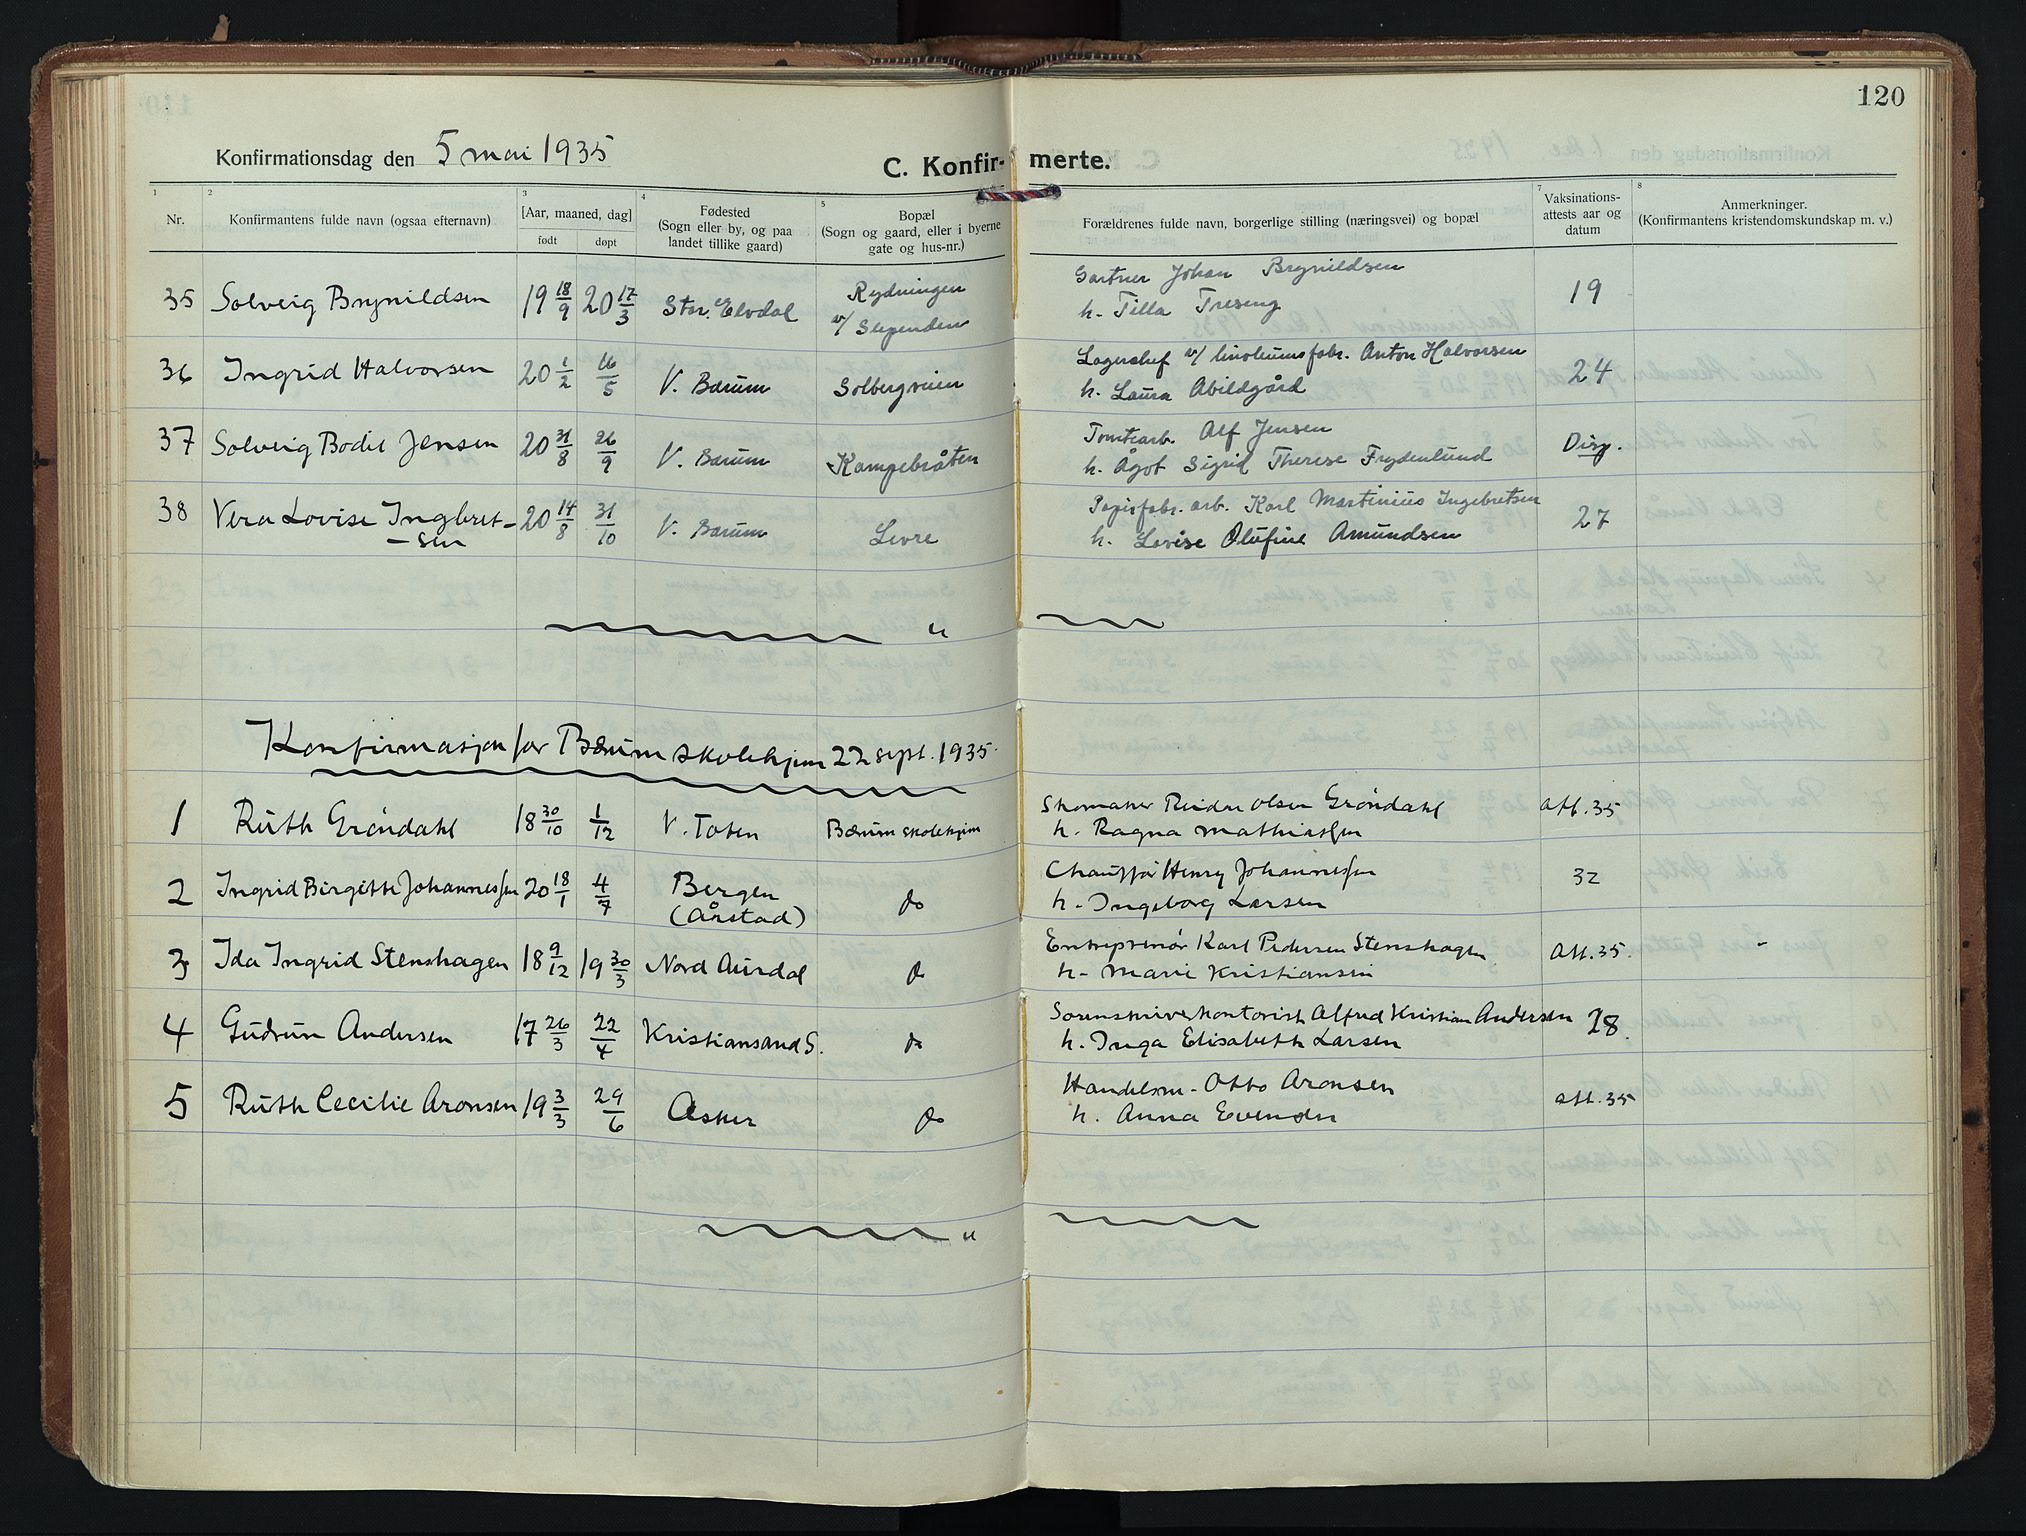 120
Konfirmationsdag den 5 mai 1935
C. Konfir- merte.
1 2 3 4 5 7 8
Nr.
Konfirmantens fulde navn (ogsaa efternavn)
[Aar, maaned, dag]
født døpt
Fødested
(Sogn eller by, og paa
landet tillike gaard)
Bopæl
(Sogn og gaard, eller i byerne
gate og hus-nr.)
Forældrenes fulde navn, borgerlige stilling (næringsvei) og bopæl
Vaksinations-
attests aar og
datum
Anmerkninger.
(Konfirmantens kristendomskundskap m. v.)
35 Solveig Brynildsen 19 18/9 20 17/3 Stor. Elvdal Rydningen
v/ Slependen
Gartner Johan Brynildsen
h. Tilla Treseng
19
36 Ingrid Halvorsen 20 1/2 16/5 V. Bærum Solbergveien
Lagerchef v/ linoleumsfabr. Anton Halvorsen
h. Laura Abildgård
24
37 Solveig Bodil Jensen 20 31/8 26/9 V. Bærum Kampebråten
Tomtearb. Alf Jensen
h. Ågot Sigrid Therese Frydenlund
Disp.
38 Vera Lovise Ingbret-
-sen
20 14/8 31/10 V. Bærum Levre
Papirfabr. arb. Karl Martinius Ingebretsen
h. Lovise Olufine Amundsen
27
"
Konfirmasjon for Bærum skolehjem 22 sept. 1935.
1 Ruth Grøndahl 18 30/10 1/12 V. Toten Bærum skolehjem
Skomaker Reidar Olsen Grøndahl
h. Ragna Mathiassen
att. 35
2 Ingrid Birgitte Johannessen 20 18/1 4/7 Bergen
(Årstad)
do
Chauffør Henry Johannessen
h. Ingeborg Larsen
32
3 Ida Ingrid Stenshagen 18 9/12 19 30/3 Nord Aurdal do
Entreprenør Karl Pedersen Stenshagen
h. Marie Kristiansen
Att. 35.
4 Gudrun Andersen 17 26/3 22/4 Kristiansand S. do
Sorenskriverkontorist Alfred Kristian Andersen
h. Inga Elisabeth Larsen
28.
5 Ruth Cecilie Aronsen 19 3/3 29/6 Asker do
Handelsm. Otto Aronsen
h. Anna Evensen
att. 35
"